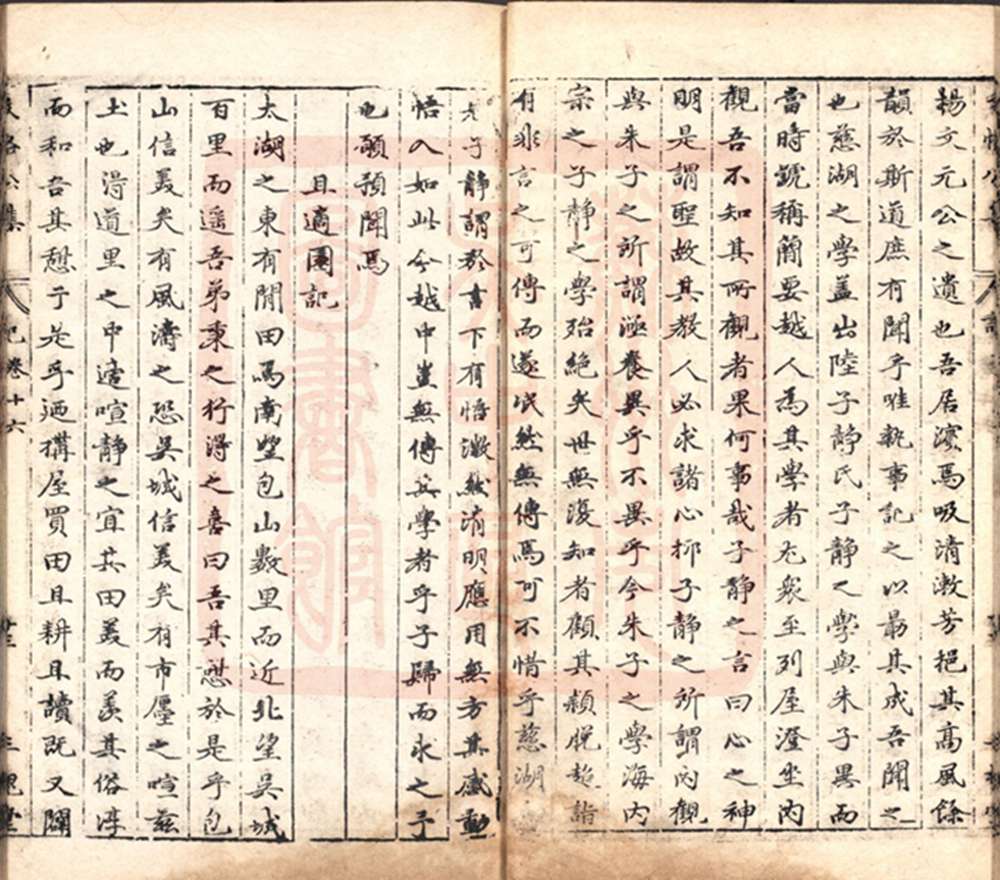 楊文元公之遺也吾居濱焉吸清漱芳挹其高風餘
韻於斯道庶有聞乎唯執事記之以朂其成吾聞之
也慈湖之學盖出陸子静氏子静之學與朱子異而
當時號稱簡要越人為其學者尤衆至列屋澄坐内
觀吾不知其所觀者果何事哉子静之言曰心之神
明是謂聖故其教人必求諸心抑子静之所謂內觀
與朱子之所謂涵養異乎不異乎今朱子之學海内
宗之子静之學殆絶矣世無復知者顧其頴脱超詣
有非言之可傳而遂泯然無傳焉可不惜乎慈湖
先子静謂於言下有悟澂然清明應用無方其感動
悟入如此今越中豈無傳其學者乎子歸而求之予
也願預聞焉
且適園記
太湖之東有閒田焉南望包山數里而近北望吳城
百里而遥吾弟秉之行得之喜曰吾其憇於是乎包
山信美矣有風濤之恐吳城信美矣有市廛之喧兹
土也得道里之中適喧静之宜其田美而羙其俗淳
而和吾其憇于是乎迺搆屋買田且耕且讀既又闢
文恪公集
記卷十六
三槐堂